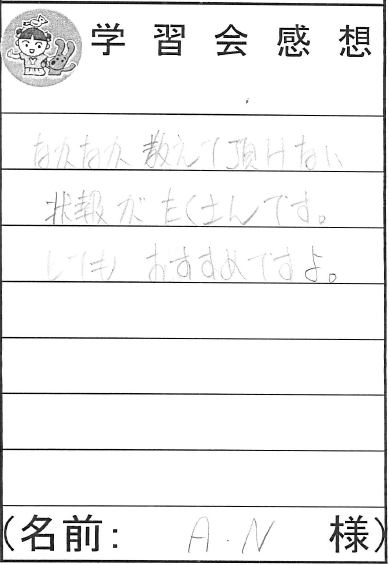 学習会感想
なかなか教えて頂けない
状報がたくさんです。
とてもおすすめですよ。
(名前: A.N 様)